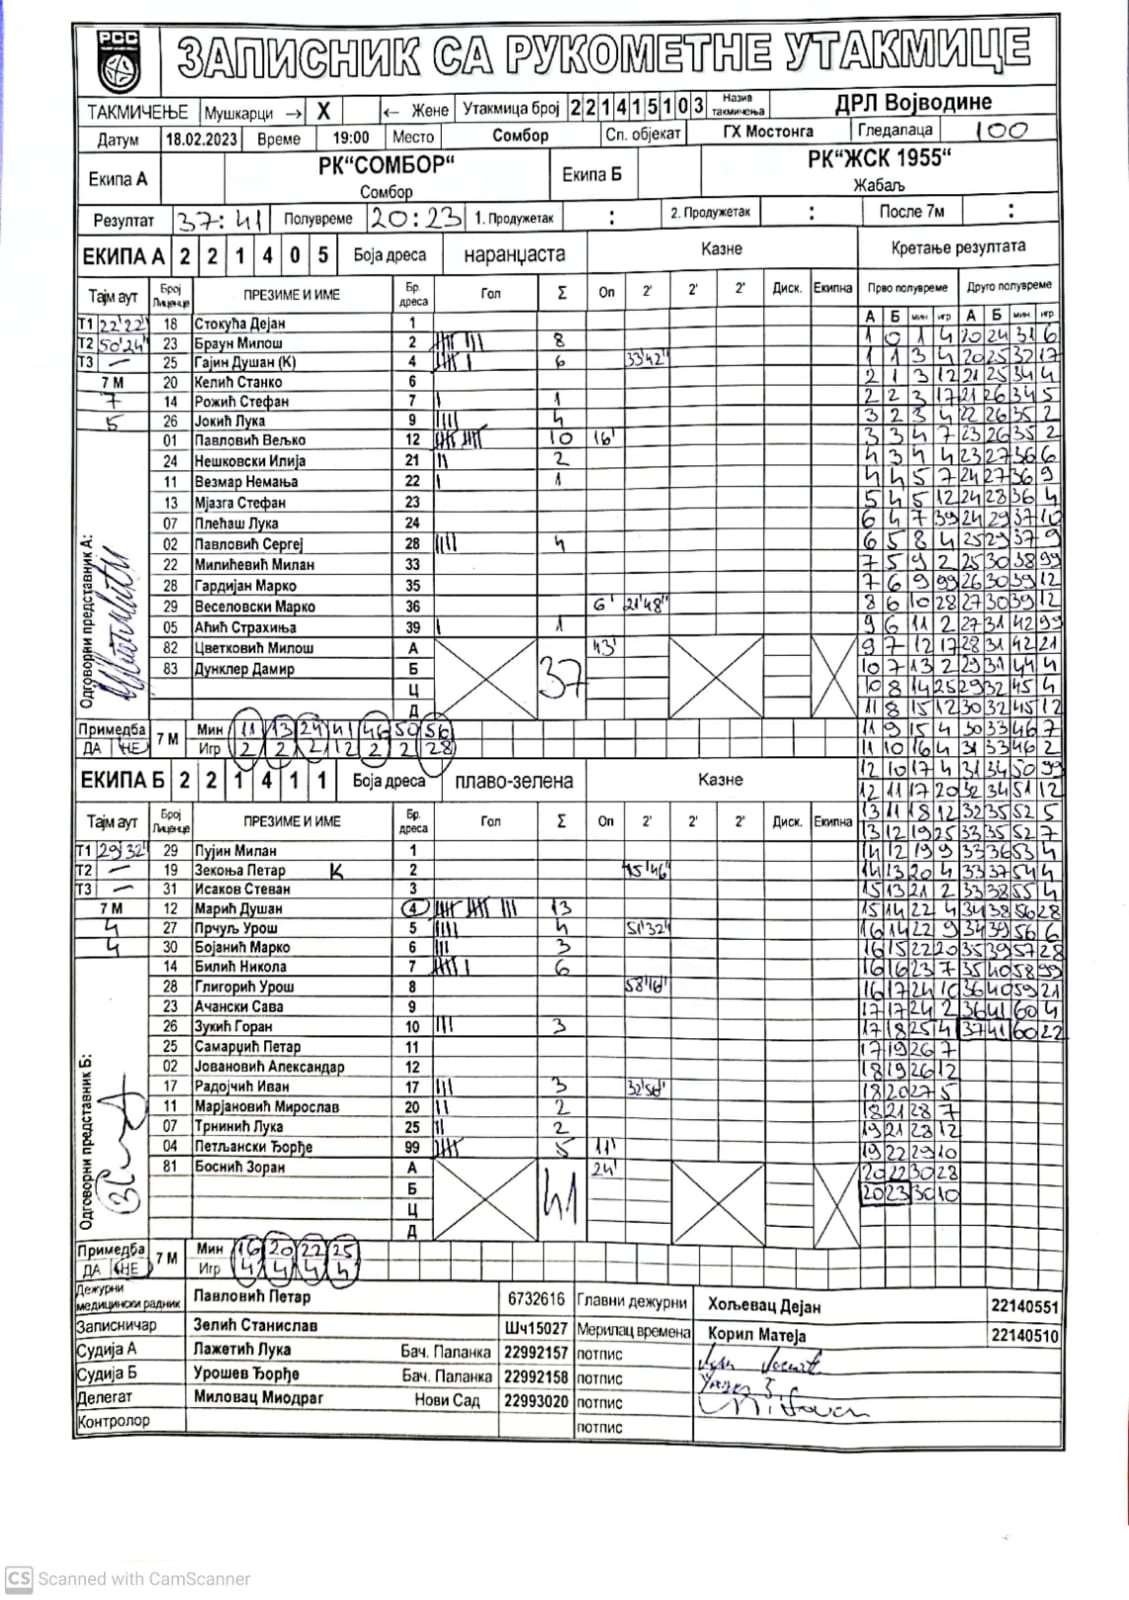 РСС
ЗАПИСНИК СА РУКОМЕТНЕ УТАКМИЦЕ
ТАКМИЧЕЊЕ Мушкарци → X ← Жене Утакмица број 2 2 1 4 1 5 1 0 3 Назив такмичења ДРЛ Војводине
Датум 18.02.2023 Време 19:00 Место Сомбор Сп. објекат ГХ Мостонга Гледалаца 100
Екипа А РК"СОМБОР" Сомбор Екипа Б РК"ЖСК 1955" Жабаљ
Резултат 37:41 Полувреме 20:23 1. Продужетак : 2. Продужетак : После 7м :
ЕКИПА А 2 2 1 4 0 5 Боја дреса наранџаста Казне Кретање резултата
Тајм аут Број Лиценце ПРЕЗИМЕ И ИМЕ Бр. дреса Гол Σ Оп 2' 2' 2' Диск. Екипна Прво полувреме Друго полувреме
А Б мин игр А Б мин игр
Т1 22'22" 18 Стокућа Дејан 1
Т2 50'24" 23 Браун Милош 2 8
Т3 — 25 Гајин Душан (К) 4 6 33'42"
7 М 20 Келић Станко 6
7 14 Рожић Стефан 7 1
5 26 Јокић Лука 9 4
01 Павловић Вељко 12 10 16'
24 Нешковски Илија 21 2
11 Везмар Немања 22 1
13 Мјазга Стефан 23
07 Плећаш Лука 24
02 Павловић Сергеј 28 4
22 Милићевић Милан 33
28 Гардијан Марко 35
29 Веселовски Марко 36 6' 21'48"
05 Аћић Страхиња 39 1
82 Цветковић Милош А 43'
83 Дунклер Дамир Б 37
Ц
Д
Одговорни представник А:
Примедба ДА НЕ 7 М Мин 11 13 24 41 46 50 56
Игр 2 2 2 12 2 2 28
ЕКИПА Б 2 2 1 4 1 1 Боја дреса плаво-зелена Казне
Тајм аут Број Лиценце ПРЕЗИМЕ И ИМЕ Бр. дреса Гол Σ Оп 2' 2' 2' Диск. Екипна
Т1 29'32" 29 Пујин Милан 1
Т2 — 19 Зекоња Петар К 2 15'46"
Т3 — 31 Исаков Стеван 3
7 М 12 Марић Душан 4 13
4 27 Прчуљ Урош 5 4 51'32"
4 30 Бојанић Марко 6 3
14 Билић Никола 7 6
28 Глигорић Урош 8 58'16"
23 Ачански Сава 9
26 Зукић Горан 10 3
25 Самарџић Петар 11
02 Јовановић Александар 12
17 Радојчић Иван 17 3
11 Марјановић Мирослав 20 2
07 Трнинић Лука 25 2
04 Петљански Ђорђе 99 5 11'
81 Боснић Зоран А 24'
Б 41
Ц
Д
Одговорни представник Б:
Примедба ДА НЕ 7 М Мин 16 20 22 25
Игр 4 4 4 4
1 0 1 4 20 24 31 6
1 1 3 4 20 25 32 17
2 1 3 12 21 25 34 4
2 2 3 17 21 26 34 5
3 2 3 4 22 26 35 2
3 3 4 7 23 26 35 2
4 3 4 4 23 27 36 6
4 4 5 7 24 27 36 9
5 4 5 12 24 28 36 4
6 4 7 39 24 29 37 10
6 5 8 4 25 29 37 9
7 5 9 2 25 30 38 99
7 6 9 99 26 30 39 12
8 6 10 28 27 30 39 12
9 6 11 2 27 31 42 99
9 7 12 17 28 31 42 21
10 7 13 2 29 31 44 4
10 8 14 25 29 32 45 4
11 8 15 12 30 32 45 12
11 9 15 4 30 33 46 7
11 10 16 4 31 33 46 2
12 10 17 4 31 34 50 99
12 11 17 20 32 34 51 12
13 11 18 12 32 35 52 5
13 12 19 25 33 35 52 7
14 12 19 9 33 36 53 4
14 13 20 4 33 37 54 4
15 13 21 2 33 38 55 4
15 14 22 4 34 38 56 28
16 14 22 9 34 39 56 6
16 15 22 20 35 39 57 28
16 16 23 7 35 40 58 99
16 17 24 10 36 40 59 21
17 17 24 2 36 41 60 4
17 18 25 4 37 41 60 22
17 19 26 7
18 19 26 12
18 20 27 5
18 21 28 7
19 21 28 12
19 22 29 10
20 22 30 28
20 23 30 10
Дежурни медицински радник Павловић Петар 6732616 Главни дежурни Хољевац Дејан 22140551
Записничар Зелић Станислав Шч15027 Мерилац времена Корил Матеја 22140510
Судија А Лажетић Лука Бач. Паланка 22992157 потпис
Судија Б Урошев Ђорђе Бач. Паланка 22992158 потпис
Делегат Миловац Миодраг Нови Сад 22993020 потпис
Контролор потпис
CS Scanned with CamScanner